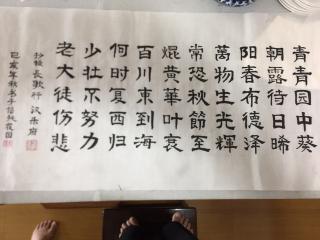 青青园中葵
朝露待日晞
阳春布德泽
萬物生光輝
常恐秋節至
焜黄華叶衰
百川東到海
何时复西归
少壮不努力
老大徒伤悲
抄録長歌行 汉乐府
己亥年秋月于